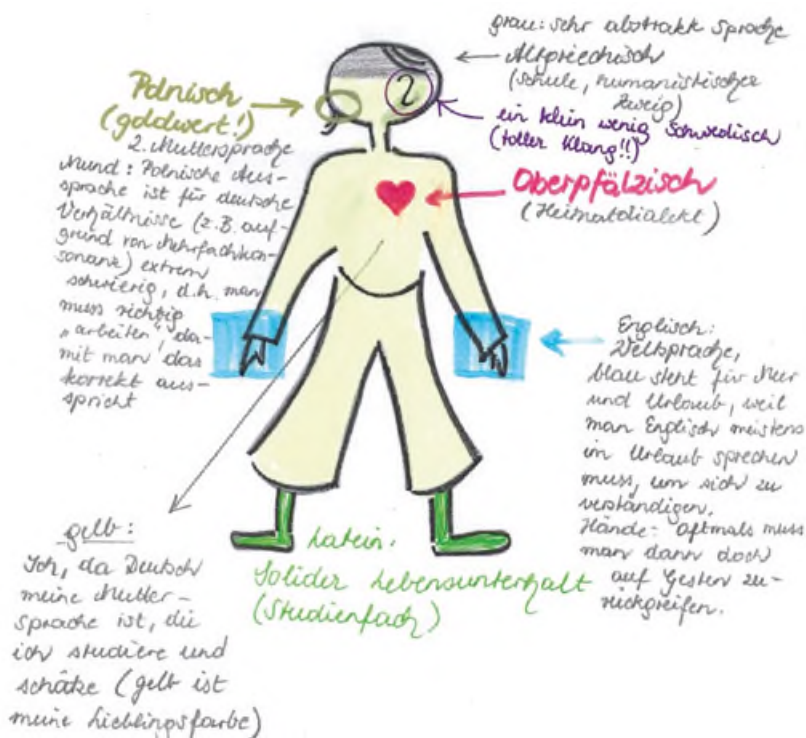 grau: sehr abstrakte Sprache
Altgriechisch
(Schule, humanistischer
Zweig)
Polnisch
(goldwert!)
2. Muttersprache
Mund: Polnische Aus-
sprache ist für deutsche
Verhältnisse (z.B. auf-
grund von Mehrfachkon-
sonanz) extrem
schwierig, d.h. man
muss richtig
„arbeiten", da-
mit man das
korrekt aus-
spricht
ein klein wenig Schwedisch
(toller Klang!!)
Oberpfälzisch
(Heimatdialekt)
Englisch:
Weltsprache,
blau steht für Meer
und Urlaub, weil
man Englisch meistens
im Urlaub sprechen
muss, um sich zu
verständigen.
Hände: oftmals muss
man dann doch
auf Gesten zu-
rückgreifen.
Latein:
Solider Lebensunterhalt
(Studienfach)
gelb:
Ich, da Deutsch
meine Mutter-
sprache ist, die
ich studiere und
schätze (gelb ist
meine Lieblingsfarbe)